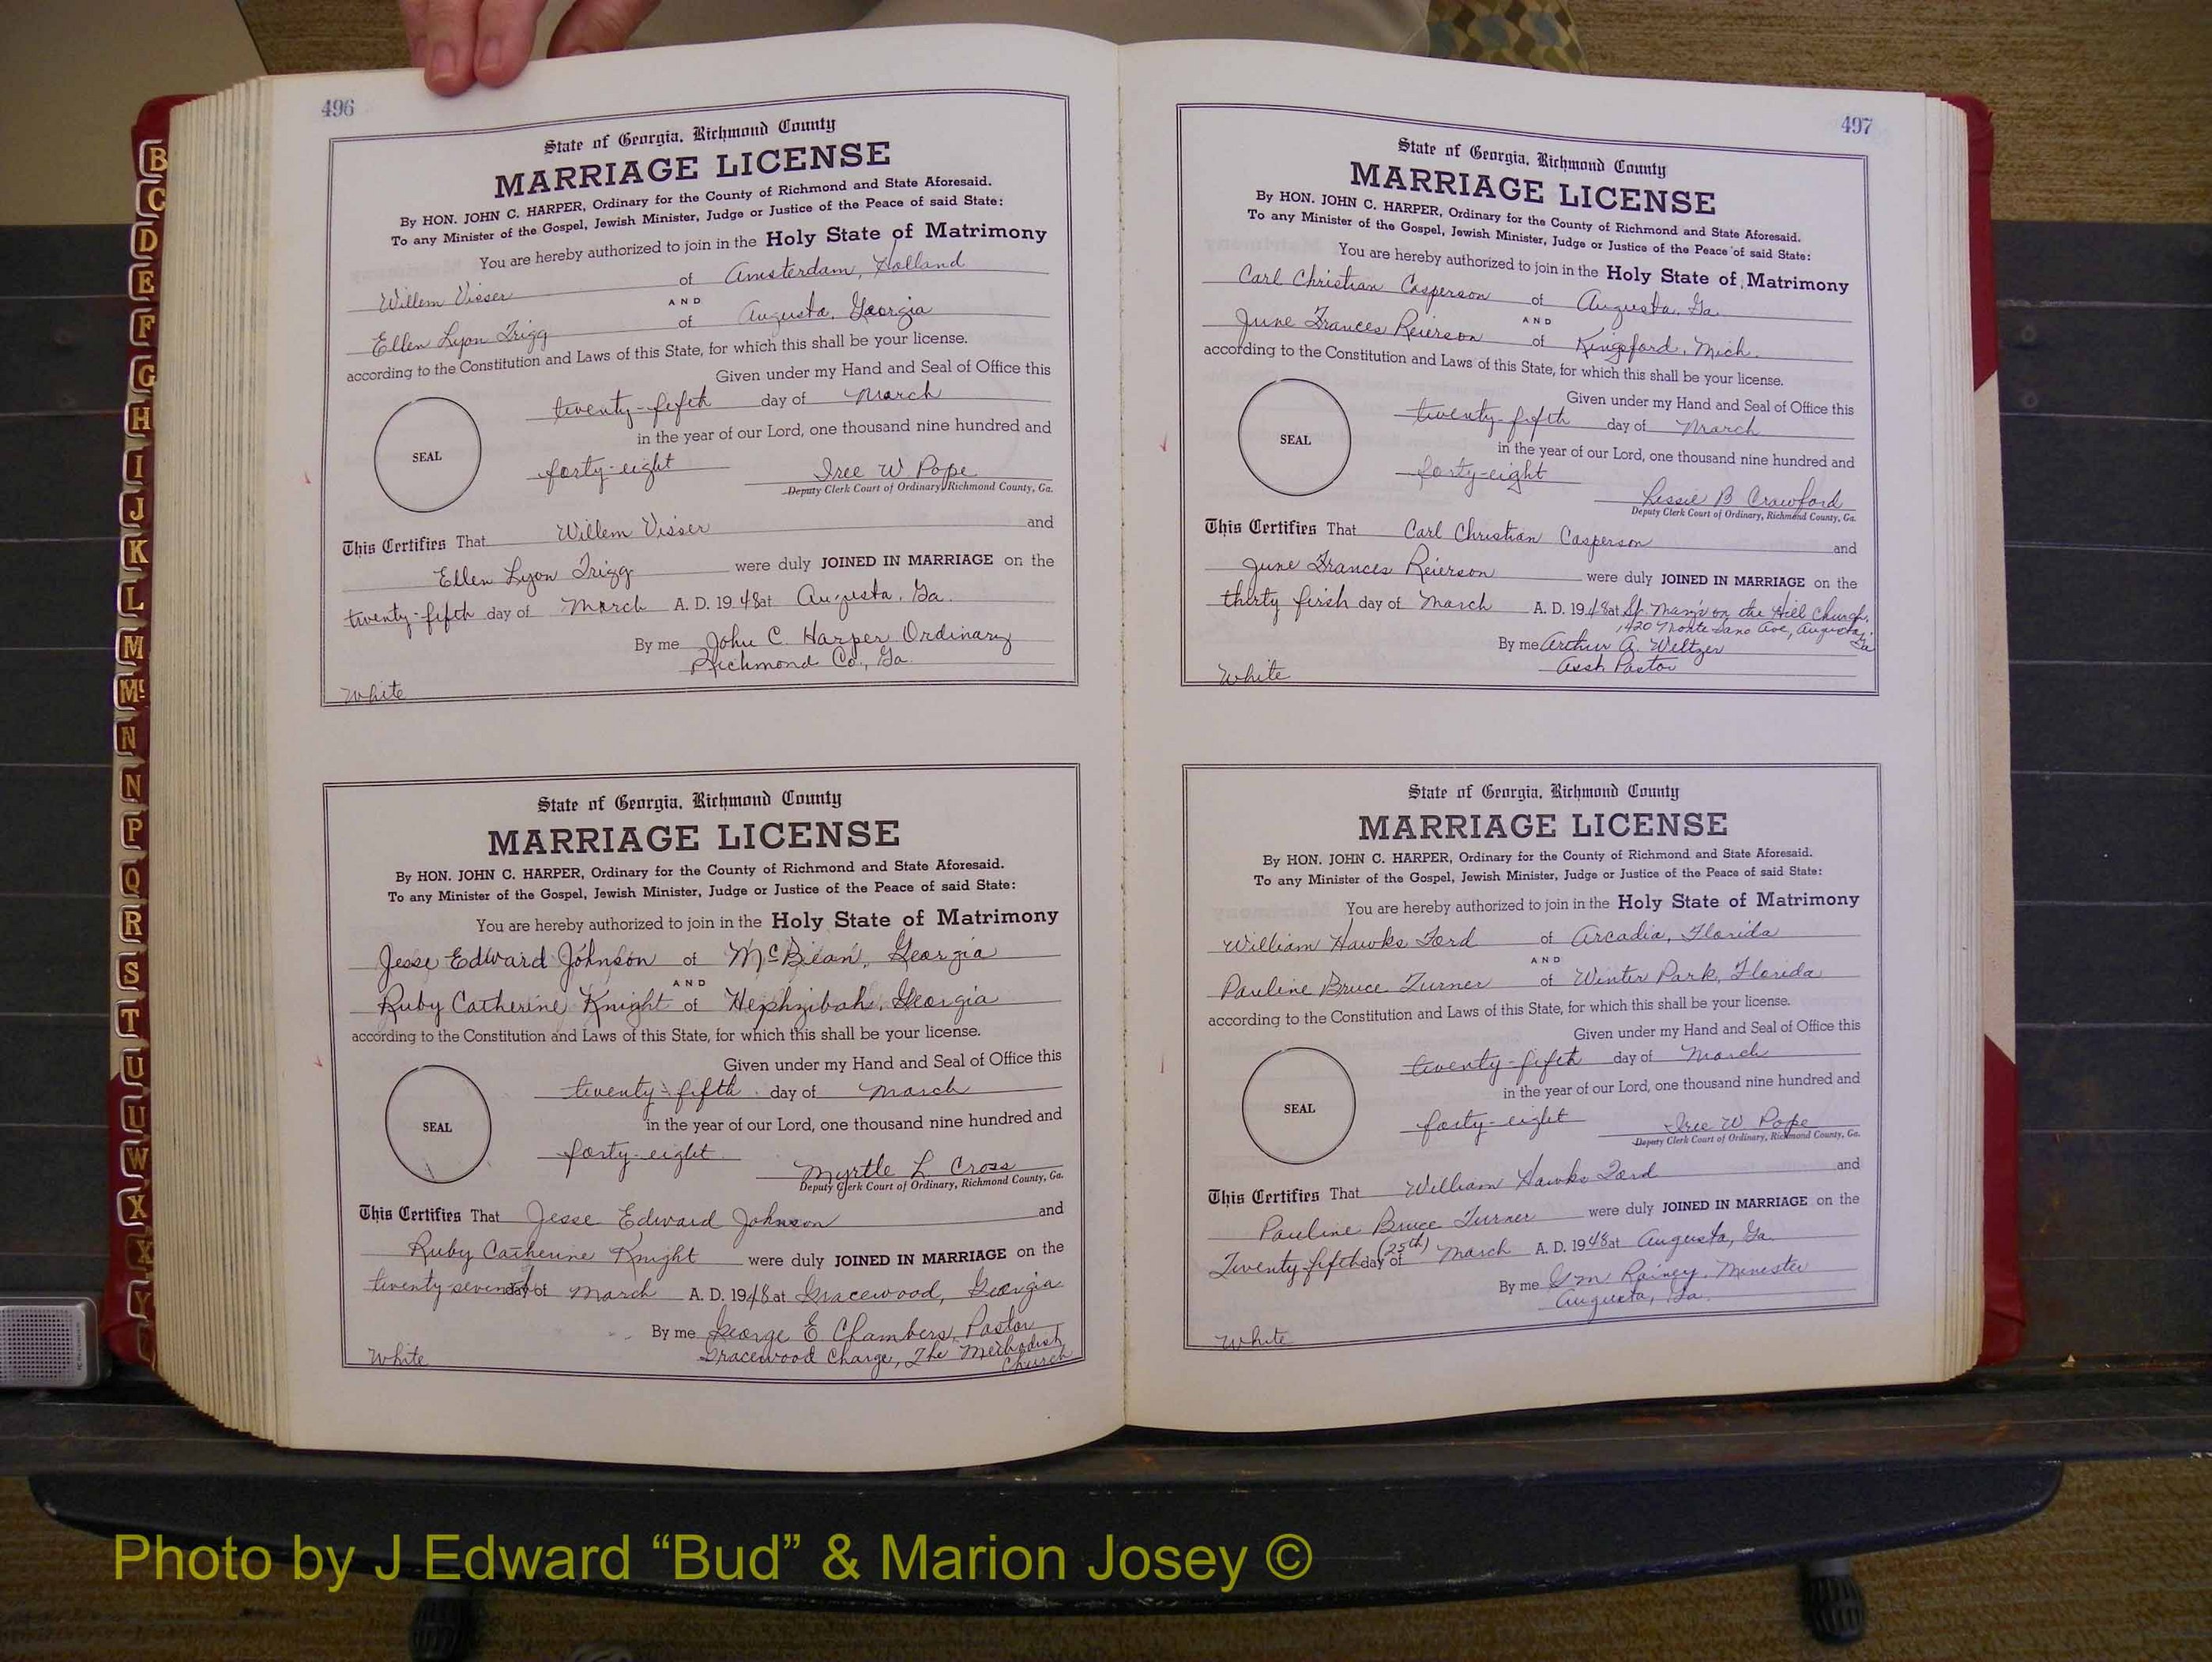 496
State of Georgia, Richmond County
MARRIAGE LICENSE
By HON. JOHN C. HARPER, Ordinary for the County of Richmond and State Aforesaid.
To any Minister of the Gospel, Jewish Minister, Judge or Justice of the Peace of said State:
You are hereby authorized to join in the Holy State of Matrimony
Willem Visser of Amsterdam, Holland
AND
Ellen Lyon Trigg of Augusta, Georgia
according to the Constitution and Laws of this State, for which this shall be your license.
Given under my Hand and Seal of Office this
twenty-fifth day of March
in the year of our Lord, one thousand nine hundred and
SEAL
forty-eight Iree W. Pope
Deputy Clerk Court of Ordinary, Richmond County, Ga.
This Certifies That Willem Visser and
Ellen Lyon Trigg were duly JOINED IN MARRIAGE on the
twenty-fifth day of March A. D. 1948 at Augusta, Ga.
By me John C. Harper Ordinary
Richmond Co., Ga.
White
State of Georgia, Richmond County
MARRIAGE LICENSE
By HON. JOHN C. HARPER, Ordinary for the County of Richmond and State Aforesaid.
To any Minister of the Gospel, Jewish Minister, Judge or Justice of the Peace of said State:
You are hereby authorized to join in the Holy State of Matrimony
Jesse Edward Johnson of McBean, Georgia
AND
Ruby Catherine Knight of Hephzibah, Georgia
according to the Constitution and Laws of this State, for which this shall be your license.
Given under my Hand and Seal of Office this
twenty-fifth day of March
in the year of our Lord, one thousand nine hundred and
SEAL
forty-eight
Myrtle L. Cross
Deputy Clerk Court of Ordinary, Richmond County, Ga.
This Certifies That Jesse Edward Johnson and
Ruby Catherine Knight were duly JOINED IN MARRIAGE on the
twenty-seventh day of March A. D. 1948 at Gracewood, Georgia
By me George E Chambers, Pastor
Gracewood Charge, The Methodist
Church
White
497
State of Georgia, Richmond County
MARRIAGE LICENSE
By HON. JOHN C. HARPER, Ordinary for the County of Richmond and State Aforesaid.
To any Minister of the Gospel, Jewish Minister, Judge or Justice of the Peace of said State:
You are hereby authorized to join in the Holy State of Matrimony
Carl Christian Casperson of Augusta, Ga.
AND
June Frances Reierson of Kingsford, Mich.
according to the Constitution and Laws of this State, for which this shall be your license.
Given under my Hand and Seal of Office this
twenty-fifth day of March
in the year of our Lord, one thousand nine hundred and
SEAL
forty-eight
Lessie B Crawford
Deputy Clerk Court of Ordinary, Richmond County, Ga.
This Certifies That Carl Christian Casperson and
June Frances Reierson were duly JOINED IN MARRIAGE on the
thirty first day of March A. D. 1948 at St. Mary's on the Hill Church,
1420 Monte Sano Ave, Augusta,
Ga
By me Arthur A. Weltzer
Asst Pastor
White
State of Georgia, Richmond County
MARRIAGE LICENSE
By HON. JOHN C. HARPER, Ordinary for the County of Richmond and State Aforesaid.
To any Minister of the Gospel, Jewish Minister, Judge or Justice of the Peace of said State:
You are hereby authorized to join in the Holy State of Matrimony
William Hawks Ford of Arcadia, Florida
AND
Pauline Bruce Turner of Winter Park, Florida
according to the Constitution and Laws of this State, for which this shall be your license.
Given under my Hand and Seal of Office this
twenty-fifth day of March
in the year of our Lord, one thousand nine hundred and
SEAL
forty-eight Iree W Pope
Deputy Clerk Court of Ordinary, Richmond County, Ga.
This Certifies That William Hawks Ford and
Pauline Bruce Turner were duly JOINED IN MARRIAGE on the
Twenty fifth (25th) day of March A. D. 1948 at Augusta, Ga.
By me Rainey, Minister
Augusta, Ga.
White
B
C
D
E
F
G
H
I
J
K
L
M
Mc
N
N
P
Q
R
S
T
U
U
W
X
X
Y
Photo by J Edward “Bud” & Marion Josey ©